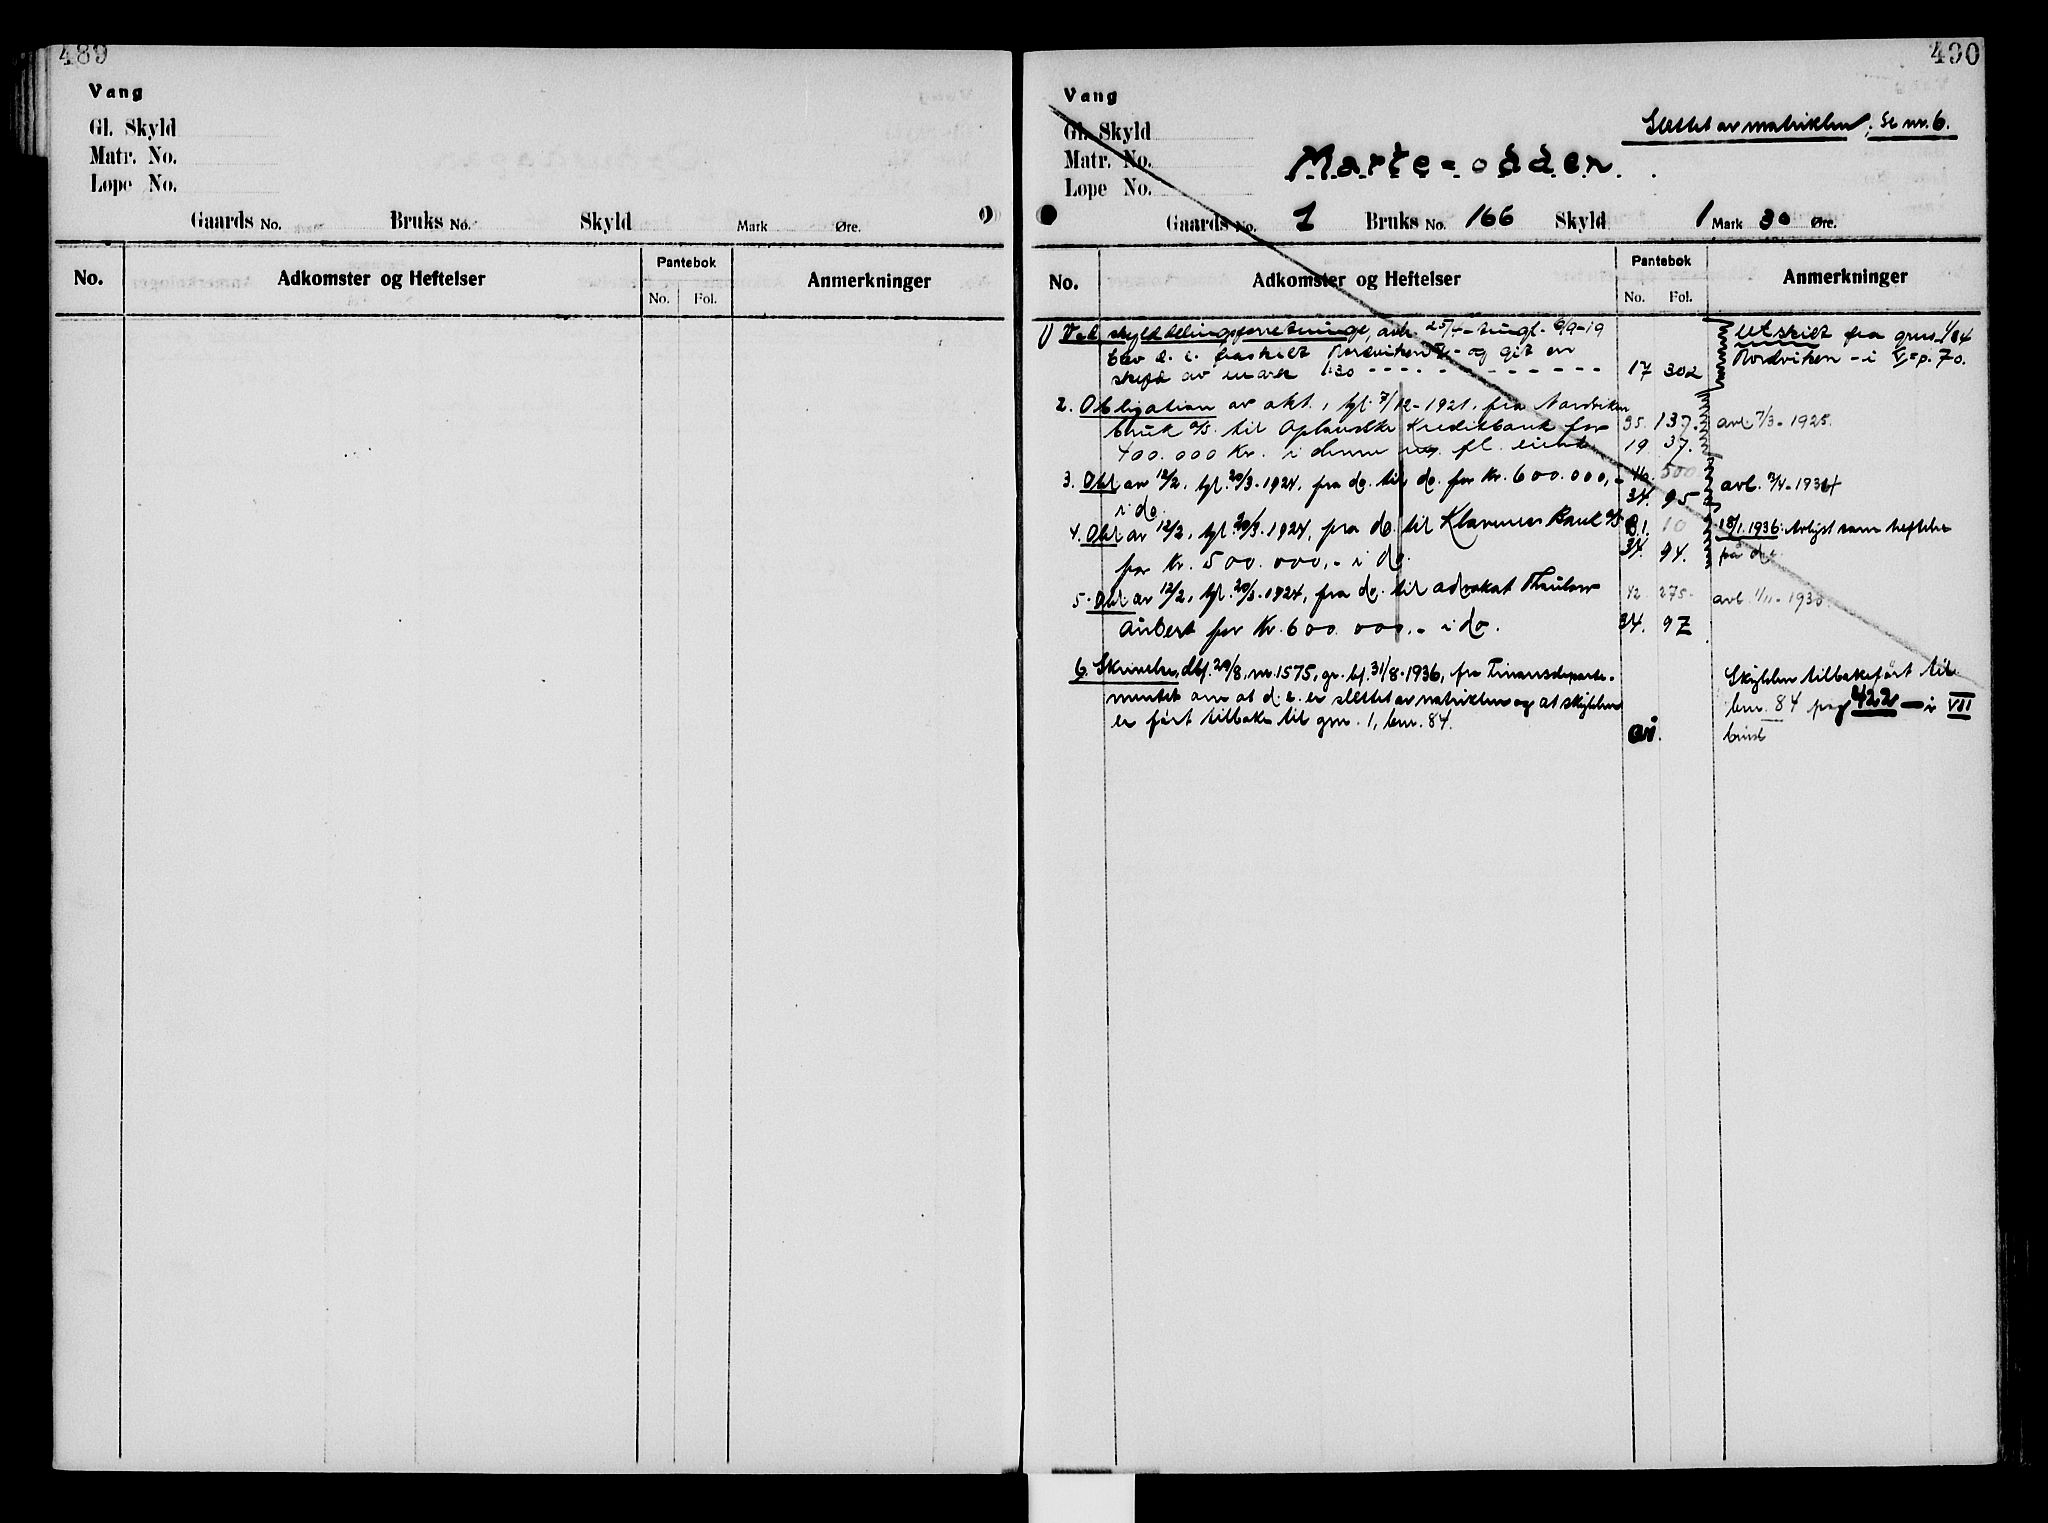 489
Vang
Gl. Skyld
Matr. No.
Løpe No.
Gaards No. Bruks No. Skyld Mark Øre.
No. Adkomster og Heftelser Pantebok Anmerkninger
No. Fol.
490
Vang
Slettet av matriklen, Se nr. 6.
Gl. Skyld
Matr. No.
Marte-odden.
Løpe No.
Gaards No. 1 Bruks No. 166 Skyld 1 Mark 30 Øre.
No. Adkomster og Heftelser Pantebok Anmerkninger
No. Fol.
1) Ved skylddelingsforretninge, avh. 25/7- tingl. 6/9-19
blev d. e. fraskilt Nordviken og git en
skyld av mark 1.30 - - - - - - 17 302
Utskilt fra gnr. 1/84
Nordviken - i V p. 70.
2. Obligation av okt., tgl. 7/12-1921, fra Nordviken
bruk a/s. til Oplandske Kreditbank for 35. 137. avl. 7/3-1925.
400.000 Kr. i denne fl. eiend. 19 37.
3. Obl. av 12/2, tgl. 20/3-1924, fra do. til do. for Kr. 600.000,- 40. 500 avl. 1934
i do. 34. 95
4. Obl. av 12/2, tgl. 20/3-1924, fra do. til Klaveness Bank a/s 31. 10 18/1.1936: Avlyst som heftelse
for Kr. 500.000,- i do. 34. 94. på d.e.
5. Obl. av 12/2, tgl. 20/3-1924, fra do. til advokat Thaulow 42. 275- avl. 1/11-1935.
Aubert for Kr. 600.000.- i do. 34. 97
6. Skrivelse, dbf. 29/8, nr. 1575, gr. bf. 31/8-1936, fra Finansdeparte-
mentet om at d. e. er slettet av matriklen og at skylden
er ført tilbake til gnr. 1, bnr. 84.
Skylden tilbakeført til
bnr. 84 pag 422 — i VII
bind